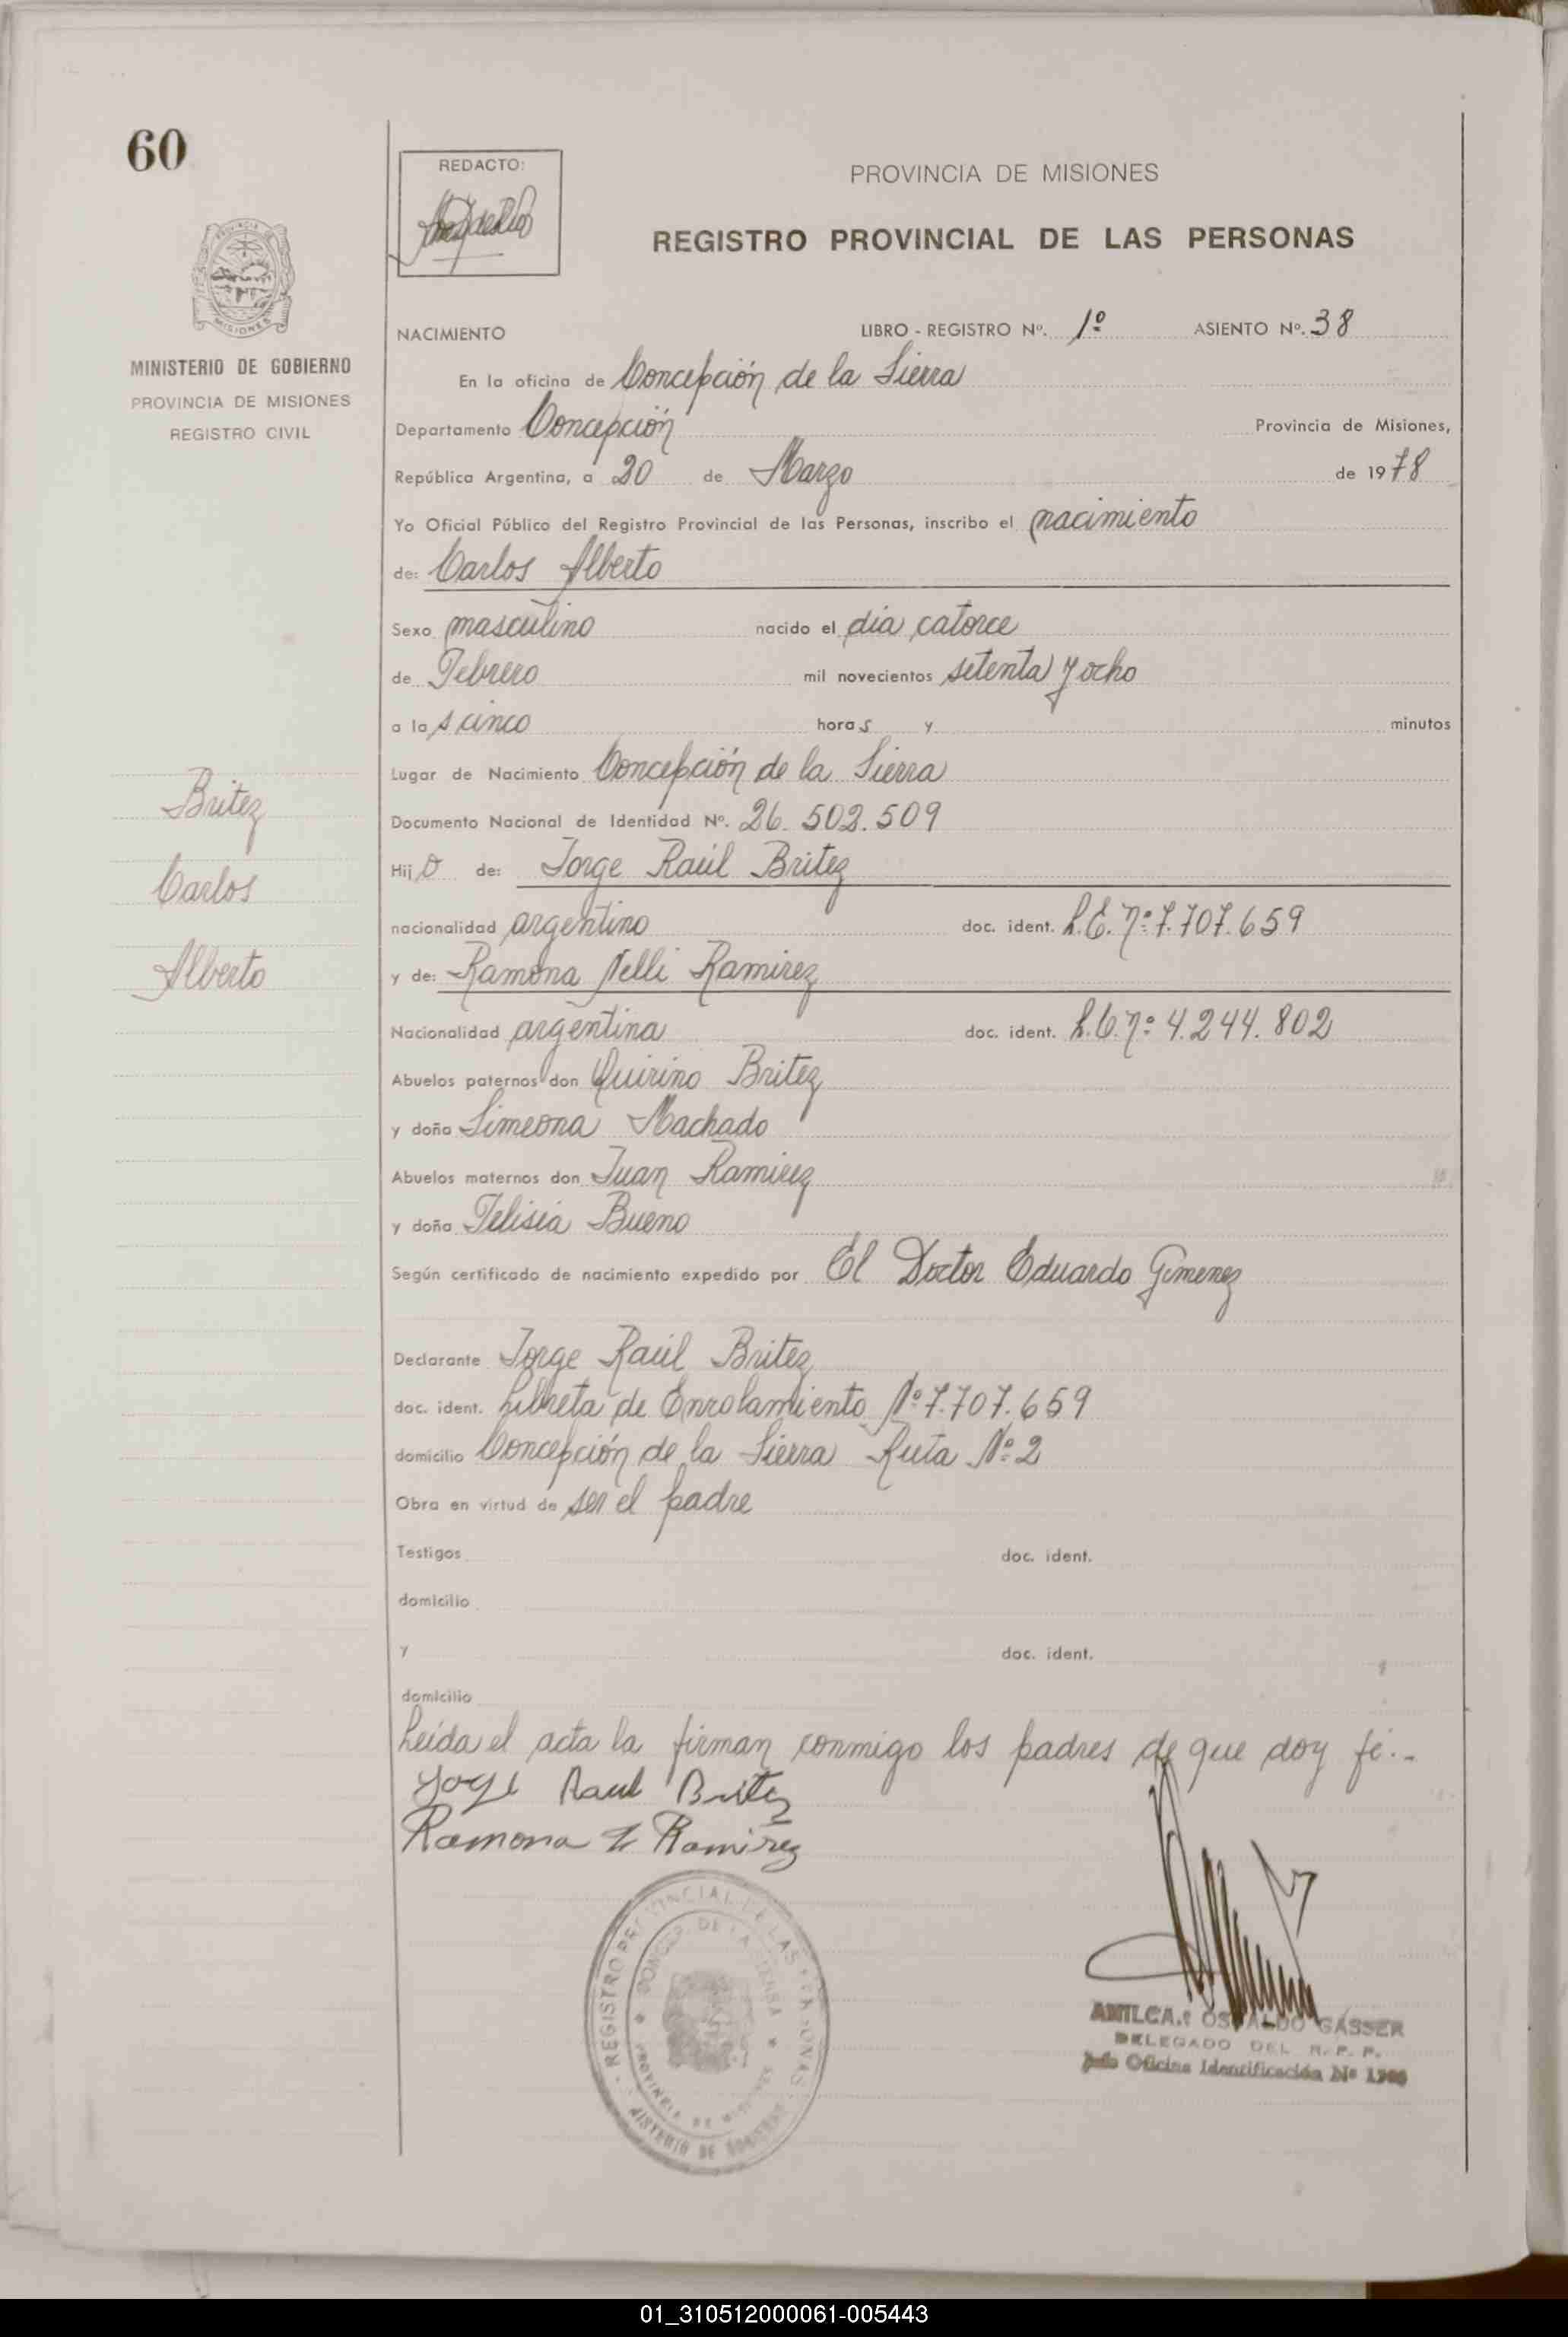 60
REDACTO:
PROVINCIA DE MISIONES
REGISTRO PROVINCIAL DE LAS PERSONAS
MISIONES
MINISTERIO DE GOBIERNO
PROVINCIA DE MISIONES
REGISTRO CIVIL
NACIMIENTO LIBRO - REGISTRO Nº. 1º ASIENTO Nº. 38
En la oficina de Concepción de la Sierra
Departamento Concepción Provincia de Misiones,
República Argentina, a 20 de Marzo de 1978
Yo Oficial Público del Registro Provincial de las Personas, inscribo el nacimiento
de: Carlos Alberto
Sexo masculino nacido el día catorce
de Febrero mil novecientos setenta y ocho
a las cinco horas y minutos
Lugar de Nacimiento Concepción de la Sierra
Documento Nacional de Identidad Nº. 26.502.509
Hijo de: Jorge Raúl Britez
nacionalidad argentino doc. ident. L.E. nº 7.707.659
y de: Ramona Nelli Ramirez
Nacionalidad argentina doc. ident. L.C. nº 4.244.802
Abuelos paternos don Quirino Britez
y doña Simeona Machado
Abuelos maternos don Juan Ramirez
y doña Felisia Bueno
Según certificado de nacimiento expedido por El Doctor Eduardo Gimenez
Declarante Jorge Raúl Britez
doc. ident. Libreta de Enrolamiento Nº 7.707.659
domicilio Concepción de la Sierra Ruta Nº 2
Obra en virtud de ser el padre
Testigos doc. ident.
domicilio
y doc. ident.
domicilio
Leída el acta la firman conmigo los padres de que doy fé.-
Britez
Carlos
Alberto
Jorge Raul Britez
Ramona N Ramirez
REGISTRO PROVINCIAL DE LAS PERSONAS
CONCEP. DE LA SIERRA
PROVINCIA DE MISIONES
MINISTERIO DE GOBIERNO
AMILCAR OSVALDO GASSER
DELEGADO DEL R. P. P.
Jefe Oficina Identificación Nº
01_310512000061-005443